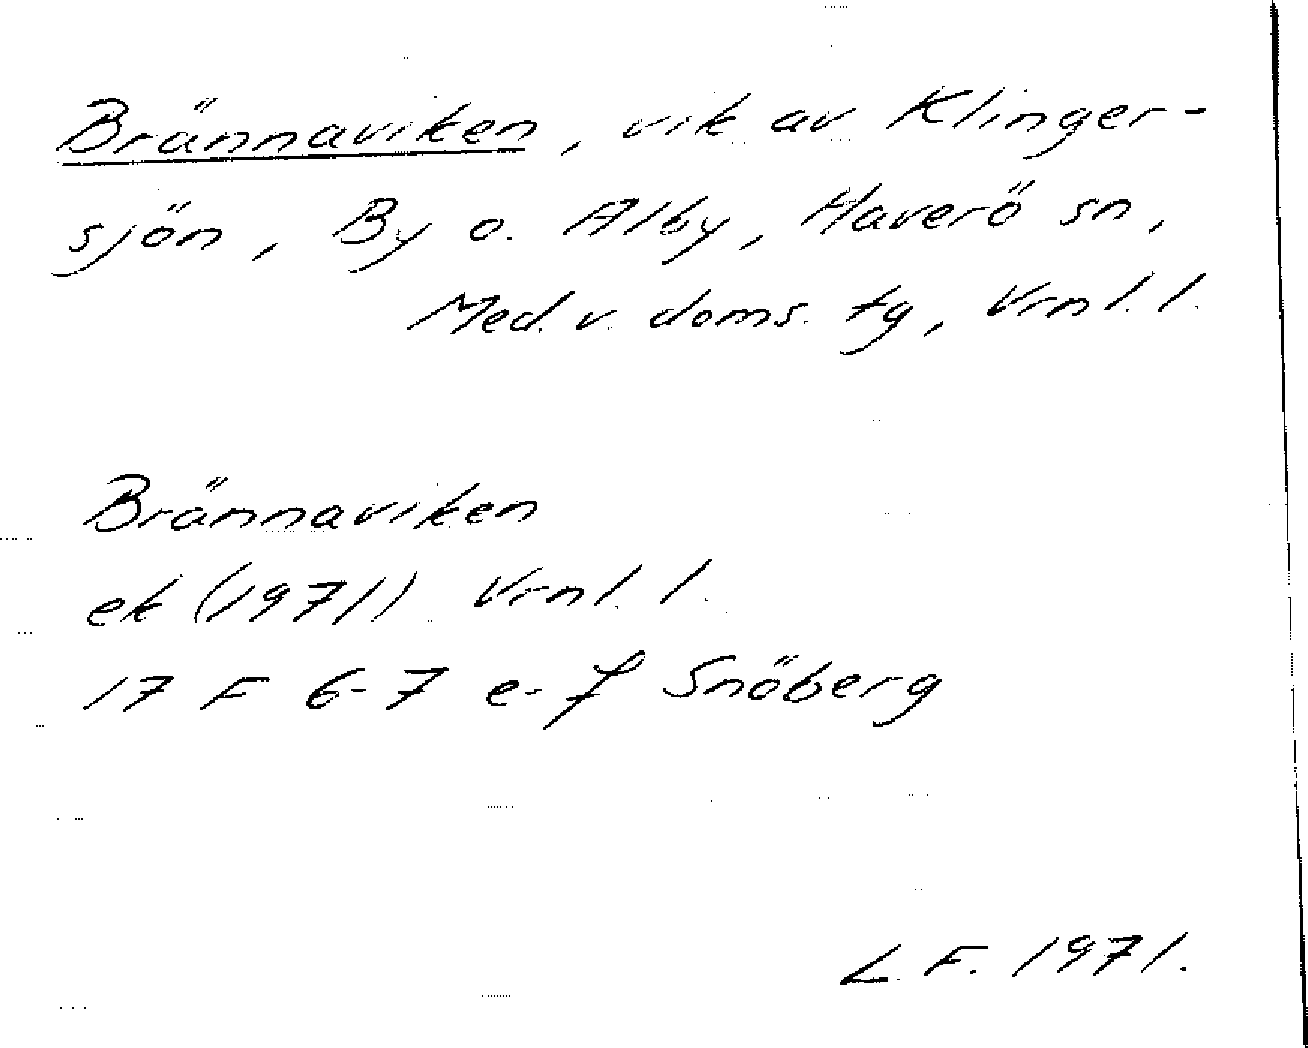 Brännaviken, vik av Klinger-
sjön, By o. Alby, Haverö sn,
Med. v. doms. tg, Vrnl. l.
Brännaviken
ek (1971) Vrnl. l.
17 F 6-7 e-f Snöberg
L. F. 1971.